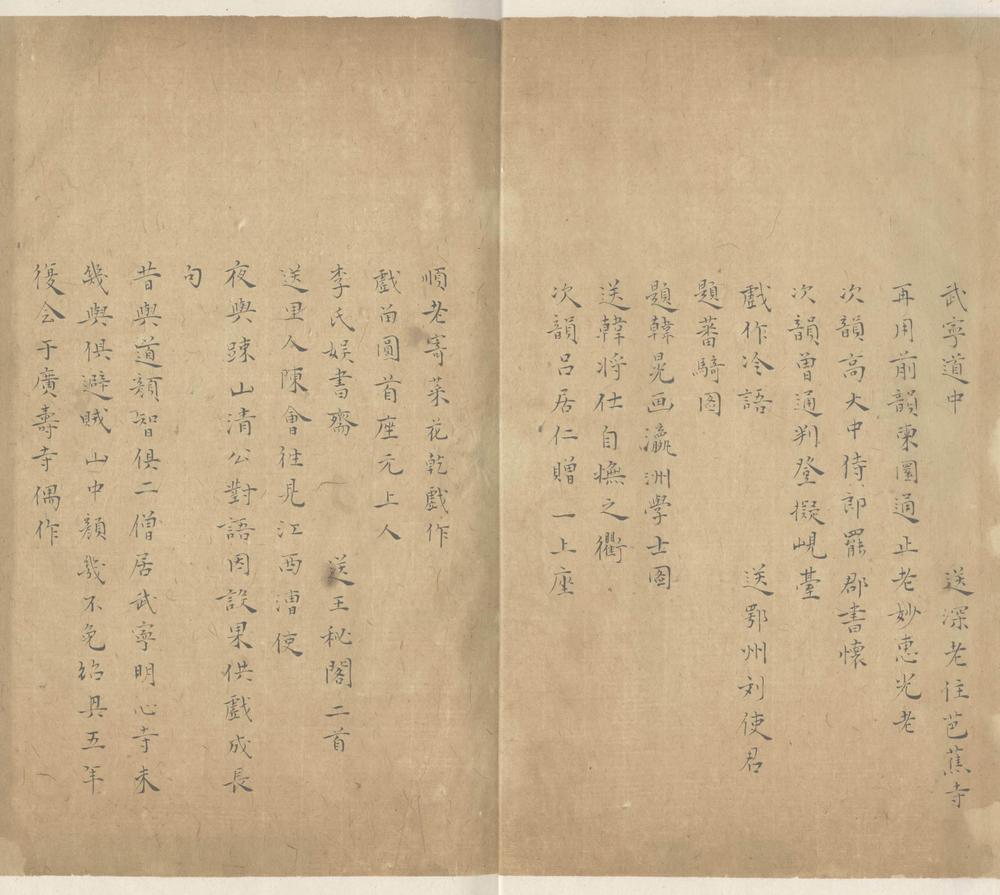 武寧道中　送深老住芭蕉寺
再用前韻東圜通止老妙惠光老
次韻高大中侍郎罷郡書懷
次韻曾通判登擬峴臺
戲作冷語　送鄂州刘使君
題蕃騎图
題韓晃画瀛洲學士图
送韓將仕自撫之衢
次韻呂居仁贈一上座
順老寄菜花乾戲作
戲畄圓首座元上人
李氏娱書齋　送王秘閣二首
送里人陳會徃見江西漕使
夜與踈山清公對語因設果供戲成長
句
昔與道顏智俱二僧居武寧明心寺未
幾與俱避賊山中顏幾不免紹興五年
復会于廣壽寺偶作